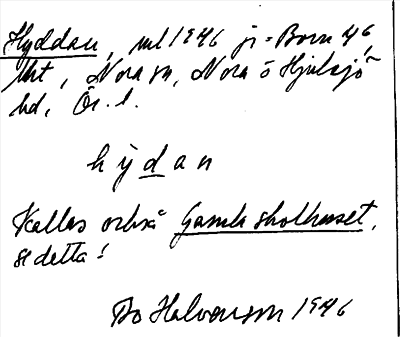 Hyddan, uul 1946 ji = Born 46,
lht, Nora sn, Nora o Hjulsjö
hd, Ör. l.
hydan
Kallas också Gamla skolhuset,
se detta!
Bo Halvarsson 1946